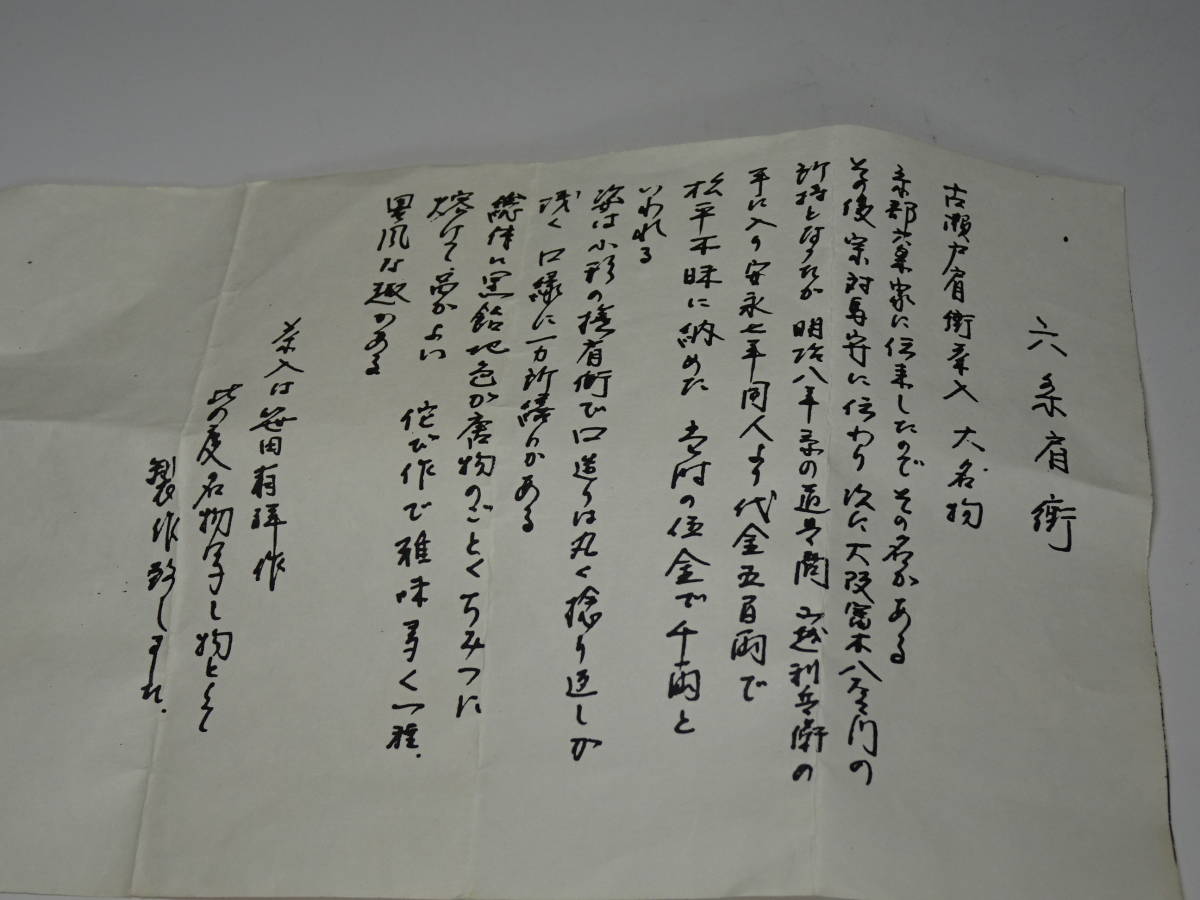 六条肩衝
古瀬戸肩衝茶入 大名物
京都六条家に伝来したのでその名がある
その後宗対馬守に伝わり次に大阪富木八左ヱ門の
所持となったが 明和八年京の道具商 山越利兵衛の
手に入り安永七年同人より代金五百両で
松平不昧に納めた 当時の位金で千両と
いわれる
姿は小形の撫肩衝で口造りは丸く捻り返しが
浅く 口縁に一カ所繕いがある
総体に黒飴地色が唐物のごとくちみつに
熔けて景がよい 侘び作で雅味多く一種.
異風な趣がある
茶入は笹田有祥作
此の度名物写し物として
製作致しました.